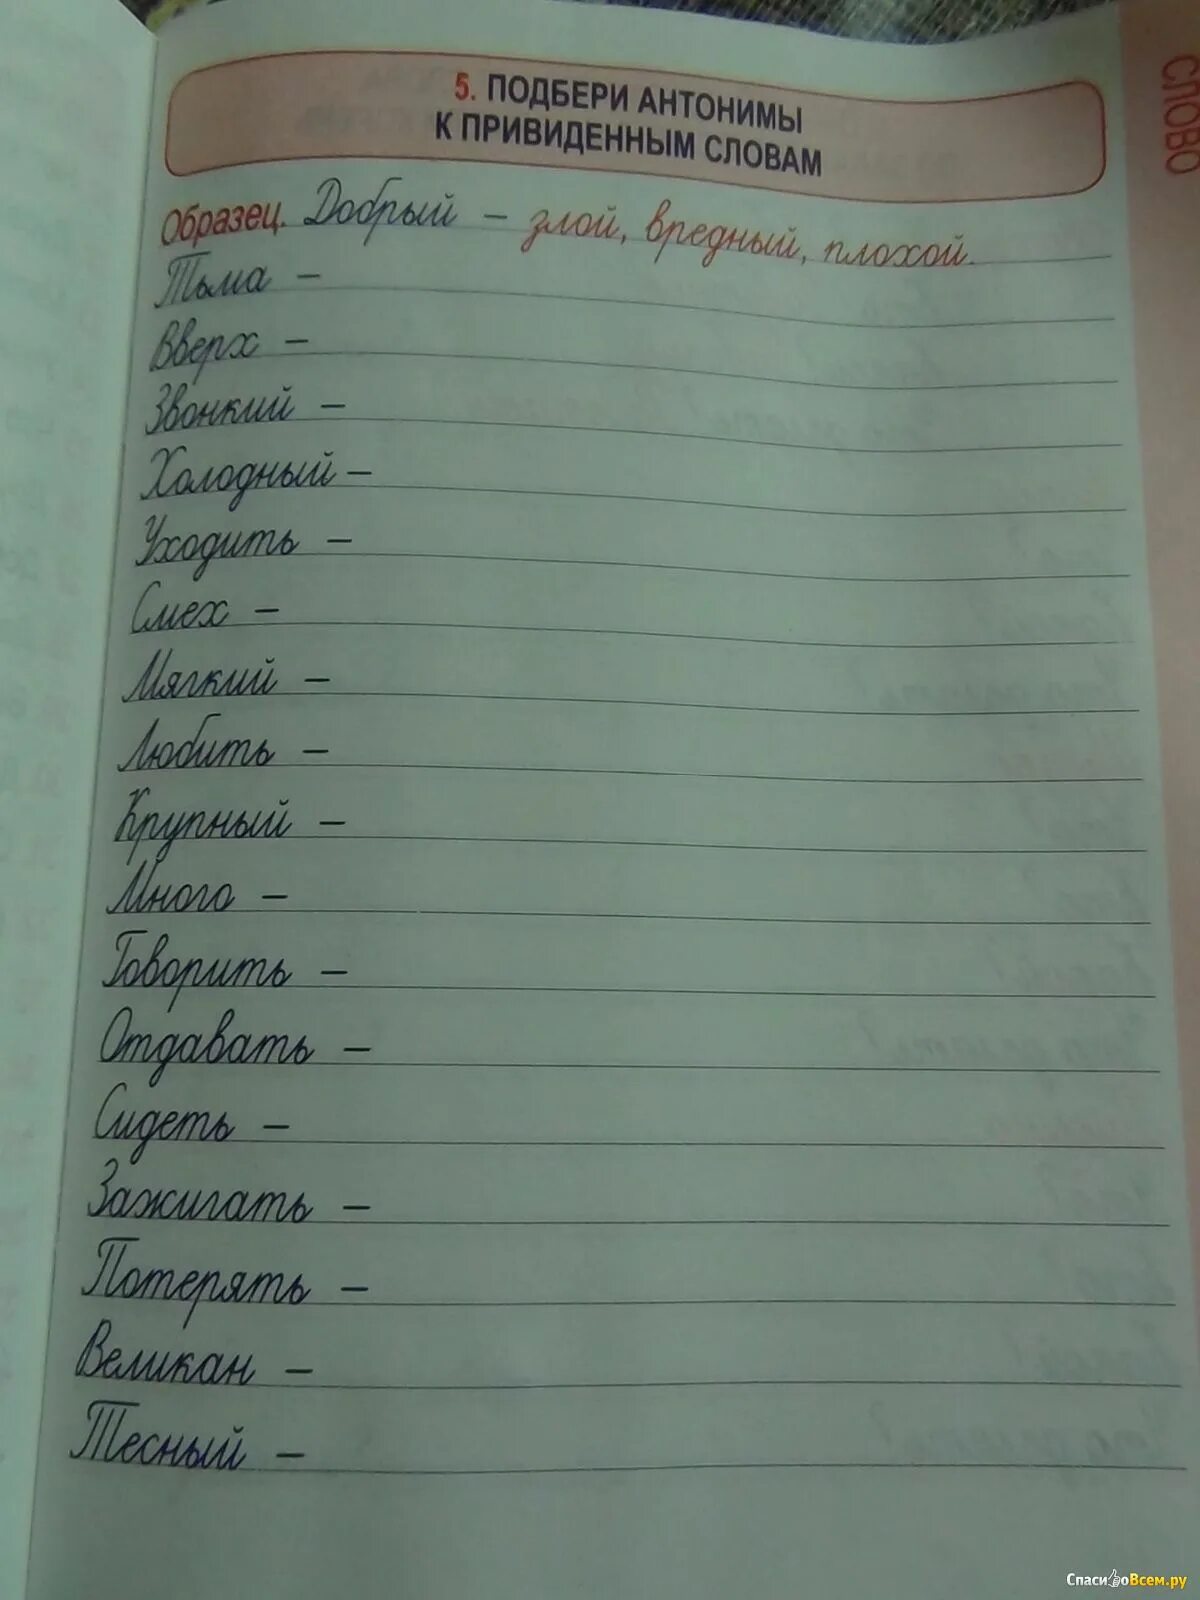 5. ПОДБЕРИ АНТОНИМЫ
К ПРИВИДЕННЫМ СЛОВАМ
СЛОВО
Образец. Добрый – злой, вредный, плохой.
Тьма –
Вверх –
Звонкий –
Холодный –
Уходить –
Смех –
Мягкий –
Любить –
Крупный –
Много –
Говорить –
Отдавать –
Сидеть –
Зажигать –
Потерять –
Великан –
Тесный –
СпасибоВсем.ру